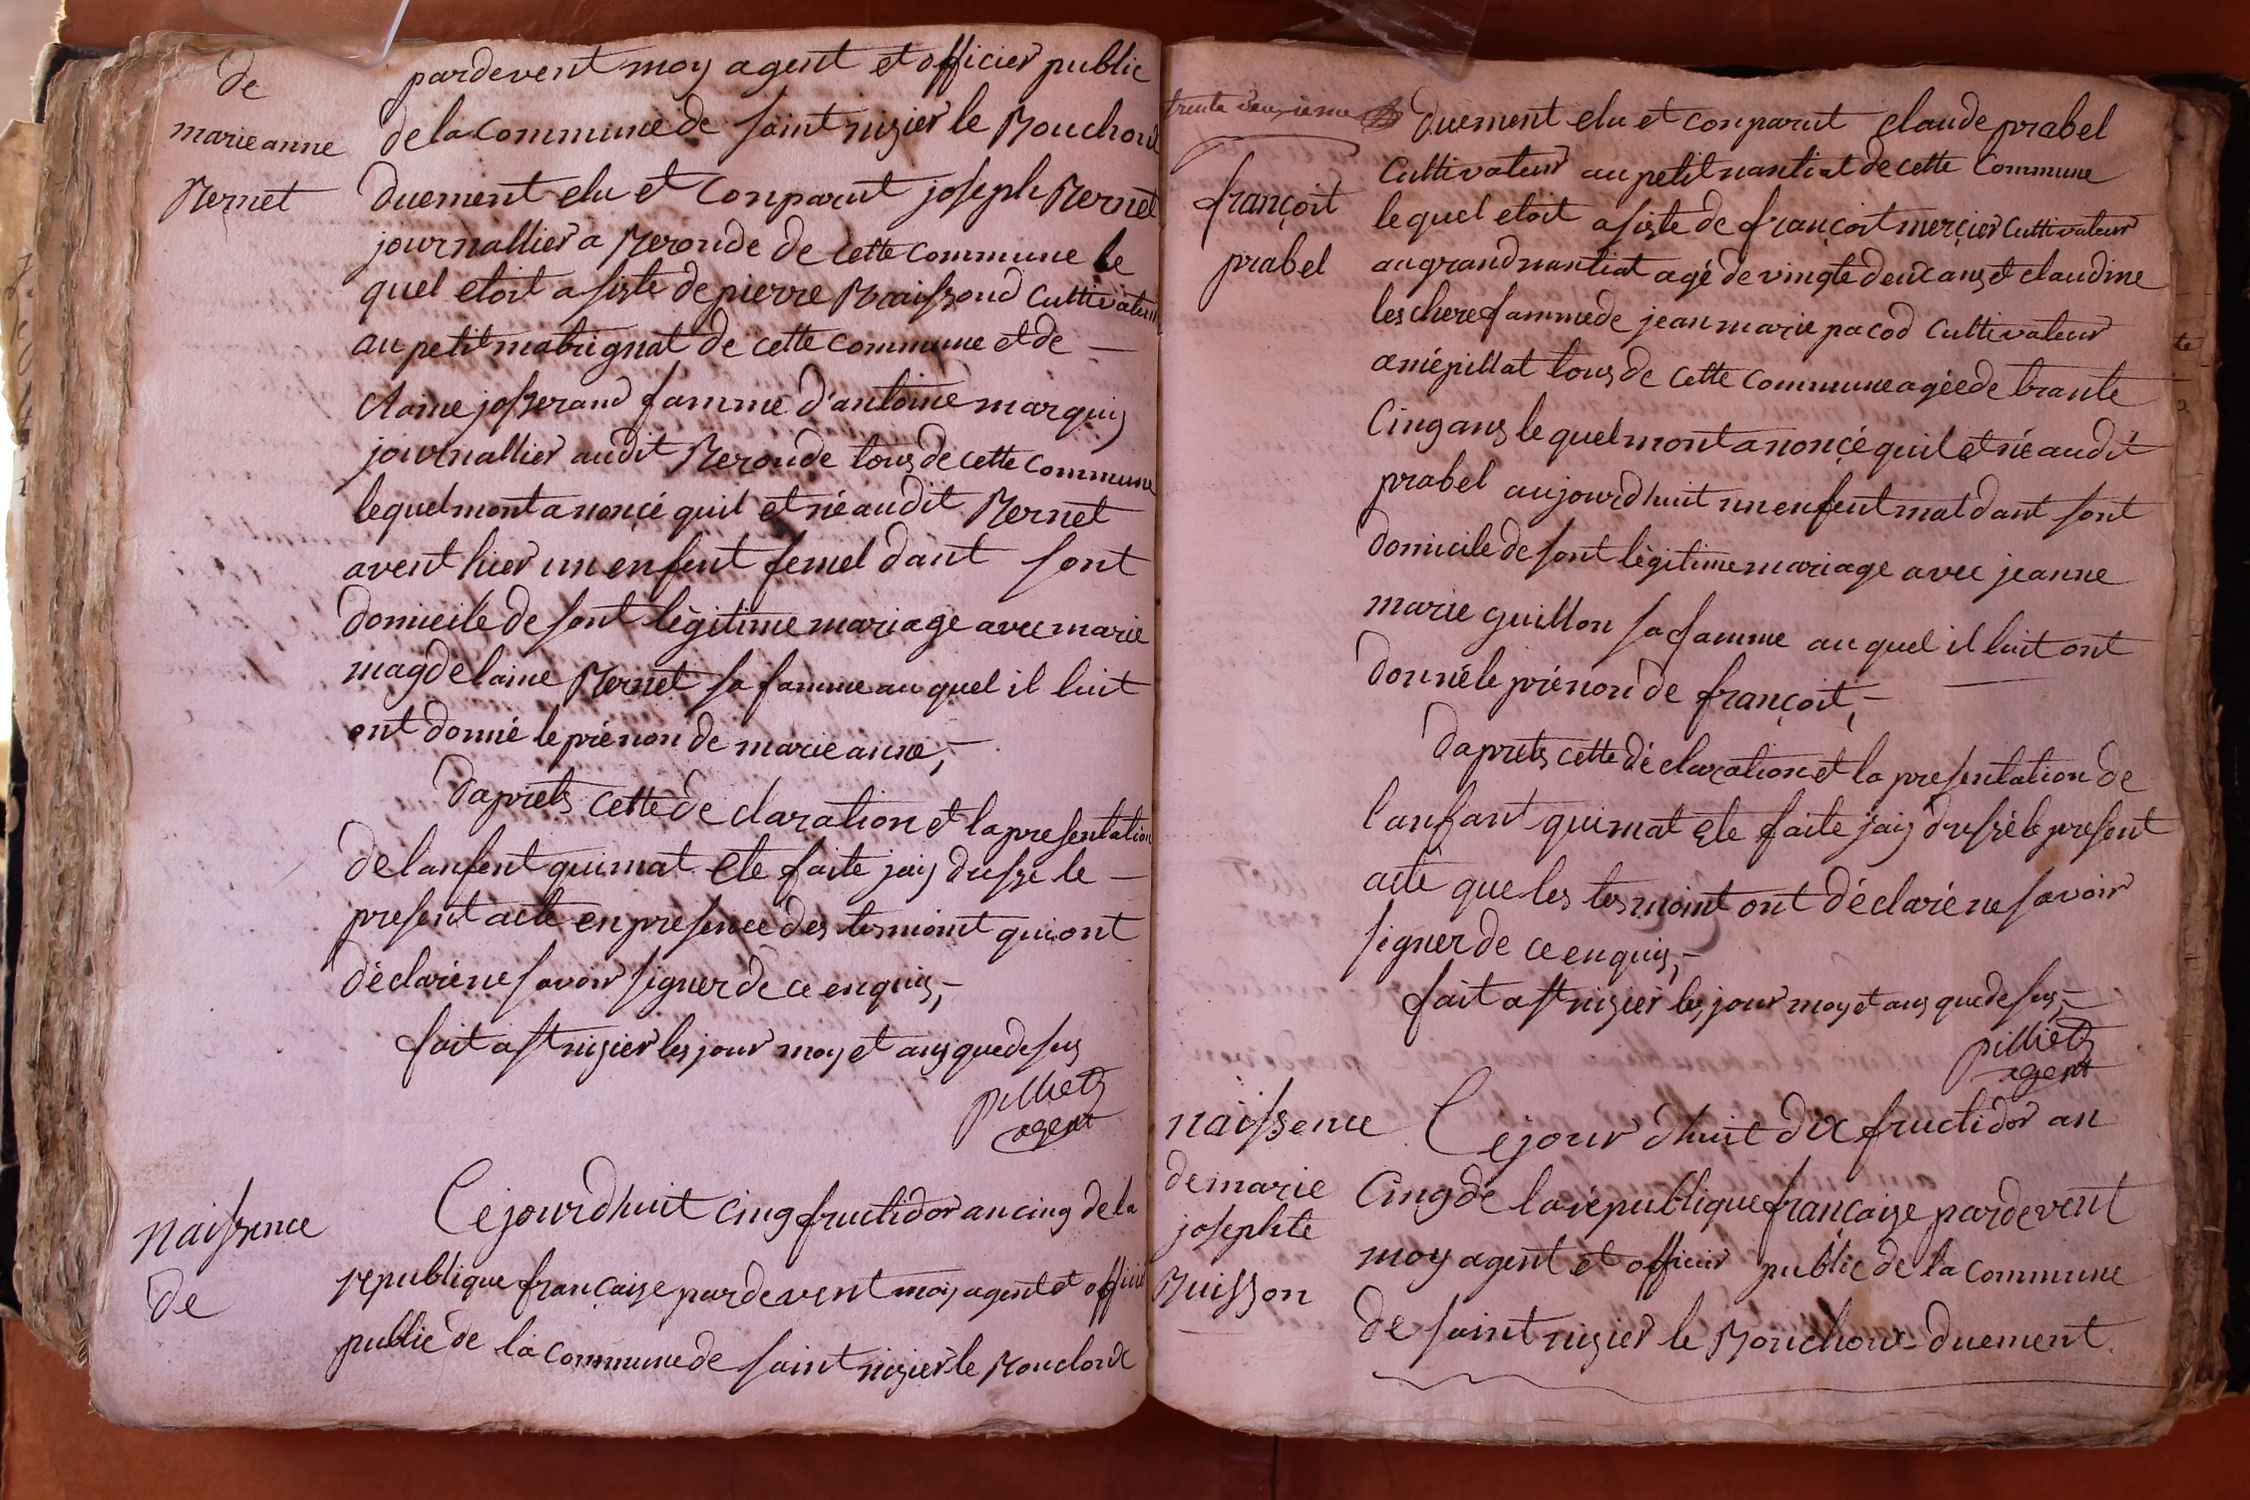 de
marie anne
Bernet
pardevent moy agent et officier public
de la commune de saint nizier le Bouchoux
duement elu et conparut joseph Bernet
journallier a Beronde de cette commune le
quel etoit asisté de pierre Braissoud cultivateur
au petit matrignat de cette commune et de —
claine josserand famme d'antoine marquis
journallier audit Beronde tous de cette commune
lequel mont anoncé quil et né audit Bernet
avent hier un enfent femel dant sont
domicile de sont légitime mariage avec marie
magdelaine Bernet sa famme au quel il luit
ont donné le prénon de marie anne,—
daprets cette declaration et la presentation
de lanfent qui mat ete faite jais dressé le —
present acte en presence des tesmoint qui ont
déclaré ne savoir signer de ce enquis,—
fait a st nizier les jour moy et ans que desus
pilliet
agent
Naissence
de
Ce jourdhuit cinq fructidor an cinq de la
republique francaise pardevent moy agent et officier
public de la commune de saint nizier le Bouchoux
trente deuxieme
françoit
prabel
duement elu et conparut claude prabel
cultivateur au petit nantiat de cette commune
le quel etoit asisté de françoit mercier cultivateur
au grand nantiat agé de vingte deux ans et claudine
les chere famme de jean marie pacod cultivateur
a miépillat tous de cette commune agée de trante
cinq ans le quel mont anoncé quil et né audit
prabel aujourdhuit un enfent mal dant sont
domicile de sont légitime mariage avec jeanne
marie guillon sa famme au quel il luit ont
donné le prénon de françoit,—
daprets cette déclaration et la presentation de
l'anfant qui mat ete faite jais dressé le present
acte que les tesmoint ont déclaré ne savoir
signer de ce enquis,—
fait a st nizier les jour moy et ans que desus,—
pilliet
agent
naissence
de marie
josephte
Buisson
Ce jour dhuit dix fructidor an
cinq de la république française pardevent
moy agent et officier public de la commune
de saint nizier le Bouchoux - duement